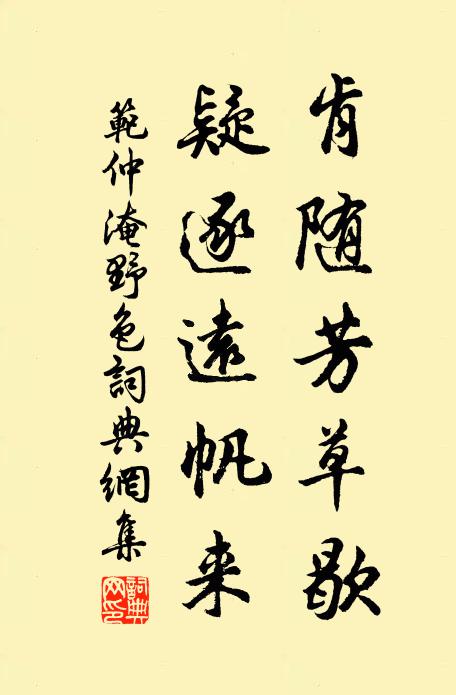 肯随芳草歇
疑逐遠帆来
範仲淹野色詞典網集
詞典
网印